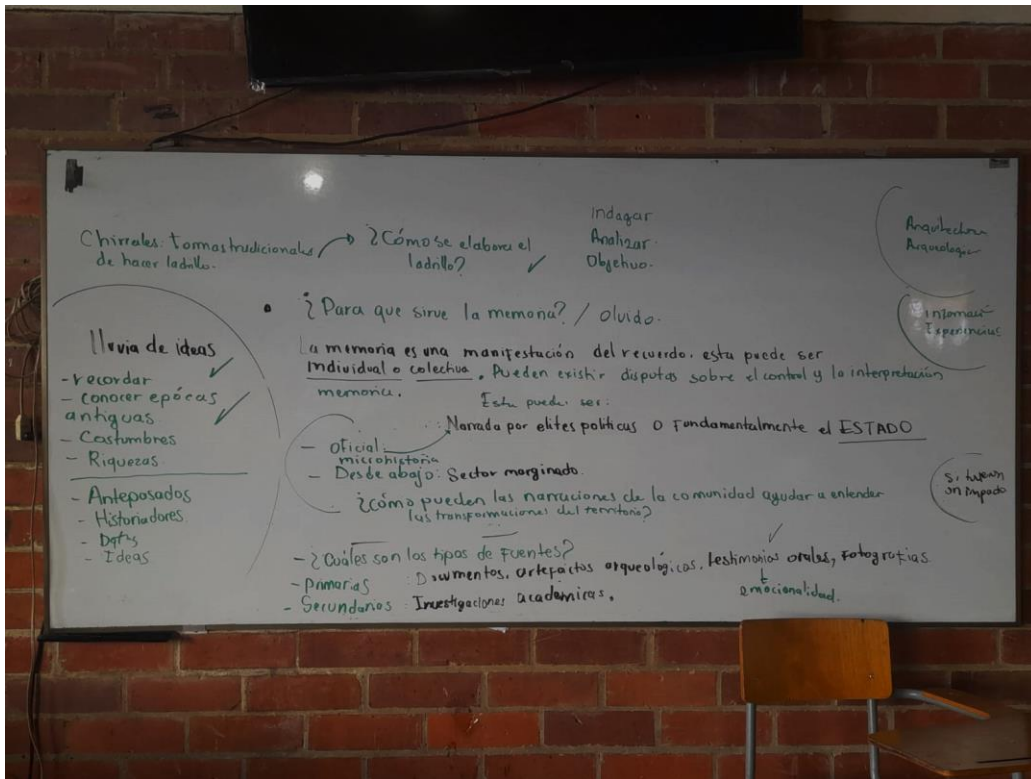 Chirrales: formas tradicionales
de hacer ladrillo.
¿Cómo se elabora el
ladrillo?
Indagar
Analizar.
Objetivo.
Arquitectura
Experiencias
Lluvia de ideas
- recordar
- conocer epócas
antiguas
- Costumbres
- Riquezas
- Antepasados
- Historiadores
- Datos
- Ideas
¿Para que sirve la memoria? / olvido.
La memoria es una manifestación del recuerdo. esta puede ser
individual o colectiva. Pueden existir disputas sobre el control y la interpretación
memoria.
Esta puede ser:
Narrada por elites politicas o Fundamentalmente el ESTADO
- Oficial
microhistoria
- Desde abajo: Sector marginado.
¿cómo pueden las narraciones de la comunidad ayudar a entender
las transformaciones del territorio?
- ¿Cuáles son los tipos de Fuentes?
- primarias : Documentos, artefactos arqueológicos, testimonios orales, Fotografias
- Secundarios : Investigaciones academicas.
emocionalidad.